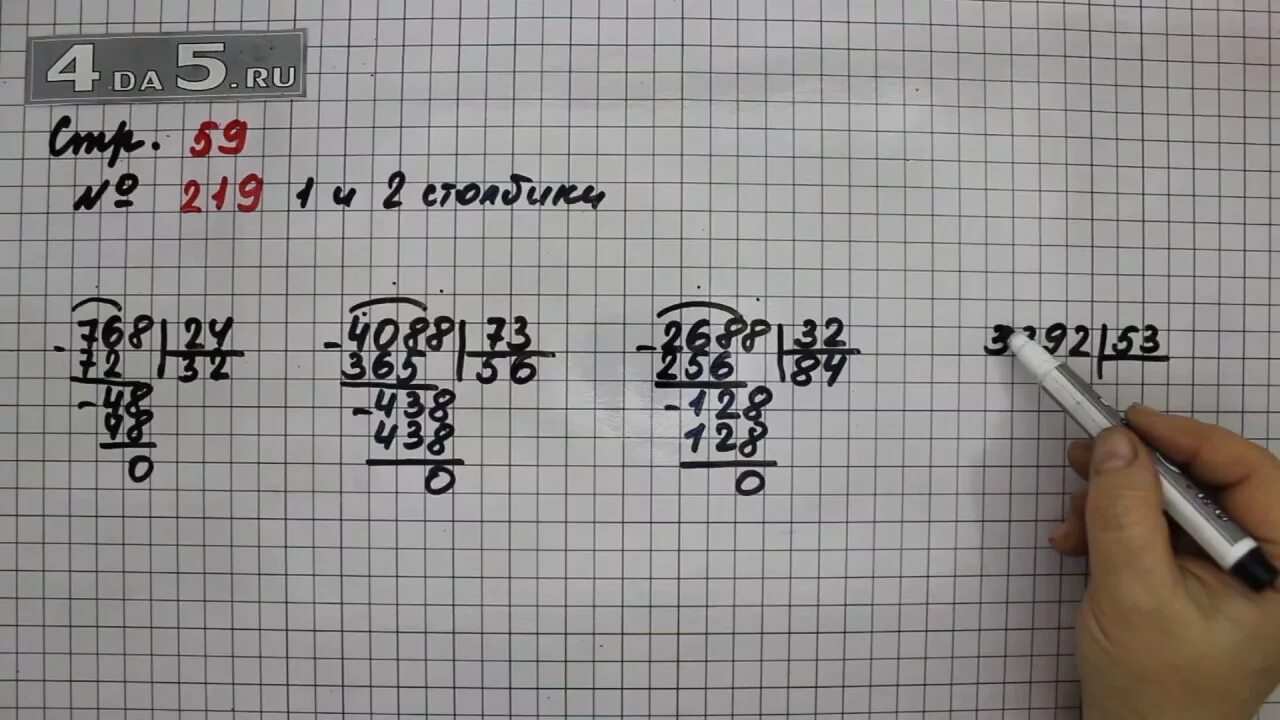 4DA5.RU
Стр. 59
№ 219 1 и 2 столбики
-768 24
72 32
-48
48
0
-4088 73
365 56
-438
438
0
-2688 32
256 84
-128
128
0
53